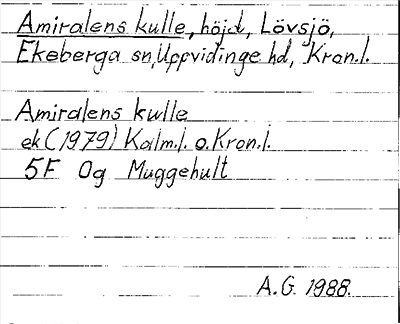 Amiralens kulle, höjd, Lövsjö,
Ekeberga sn, Uppvidinge hd, Kron.l.
Amiralens kulle
ek (1979) Kalm.l. o. Kron.l.
5F 0g Muggehult
A.G. 1988.